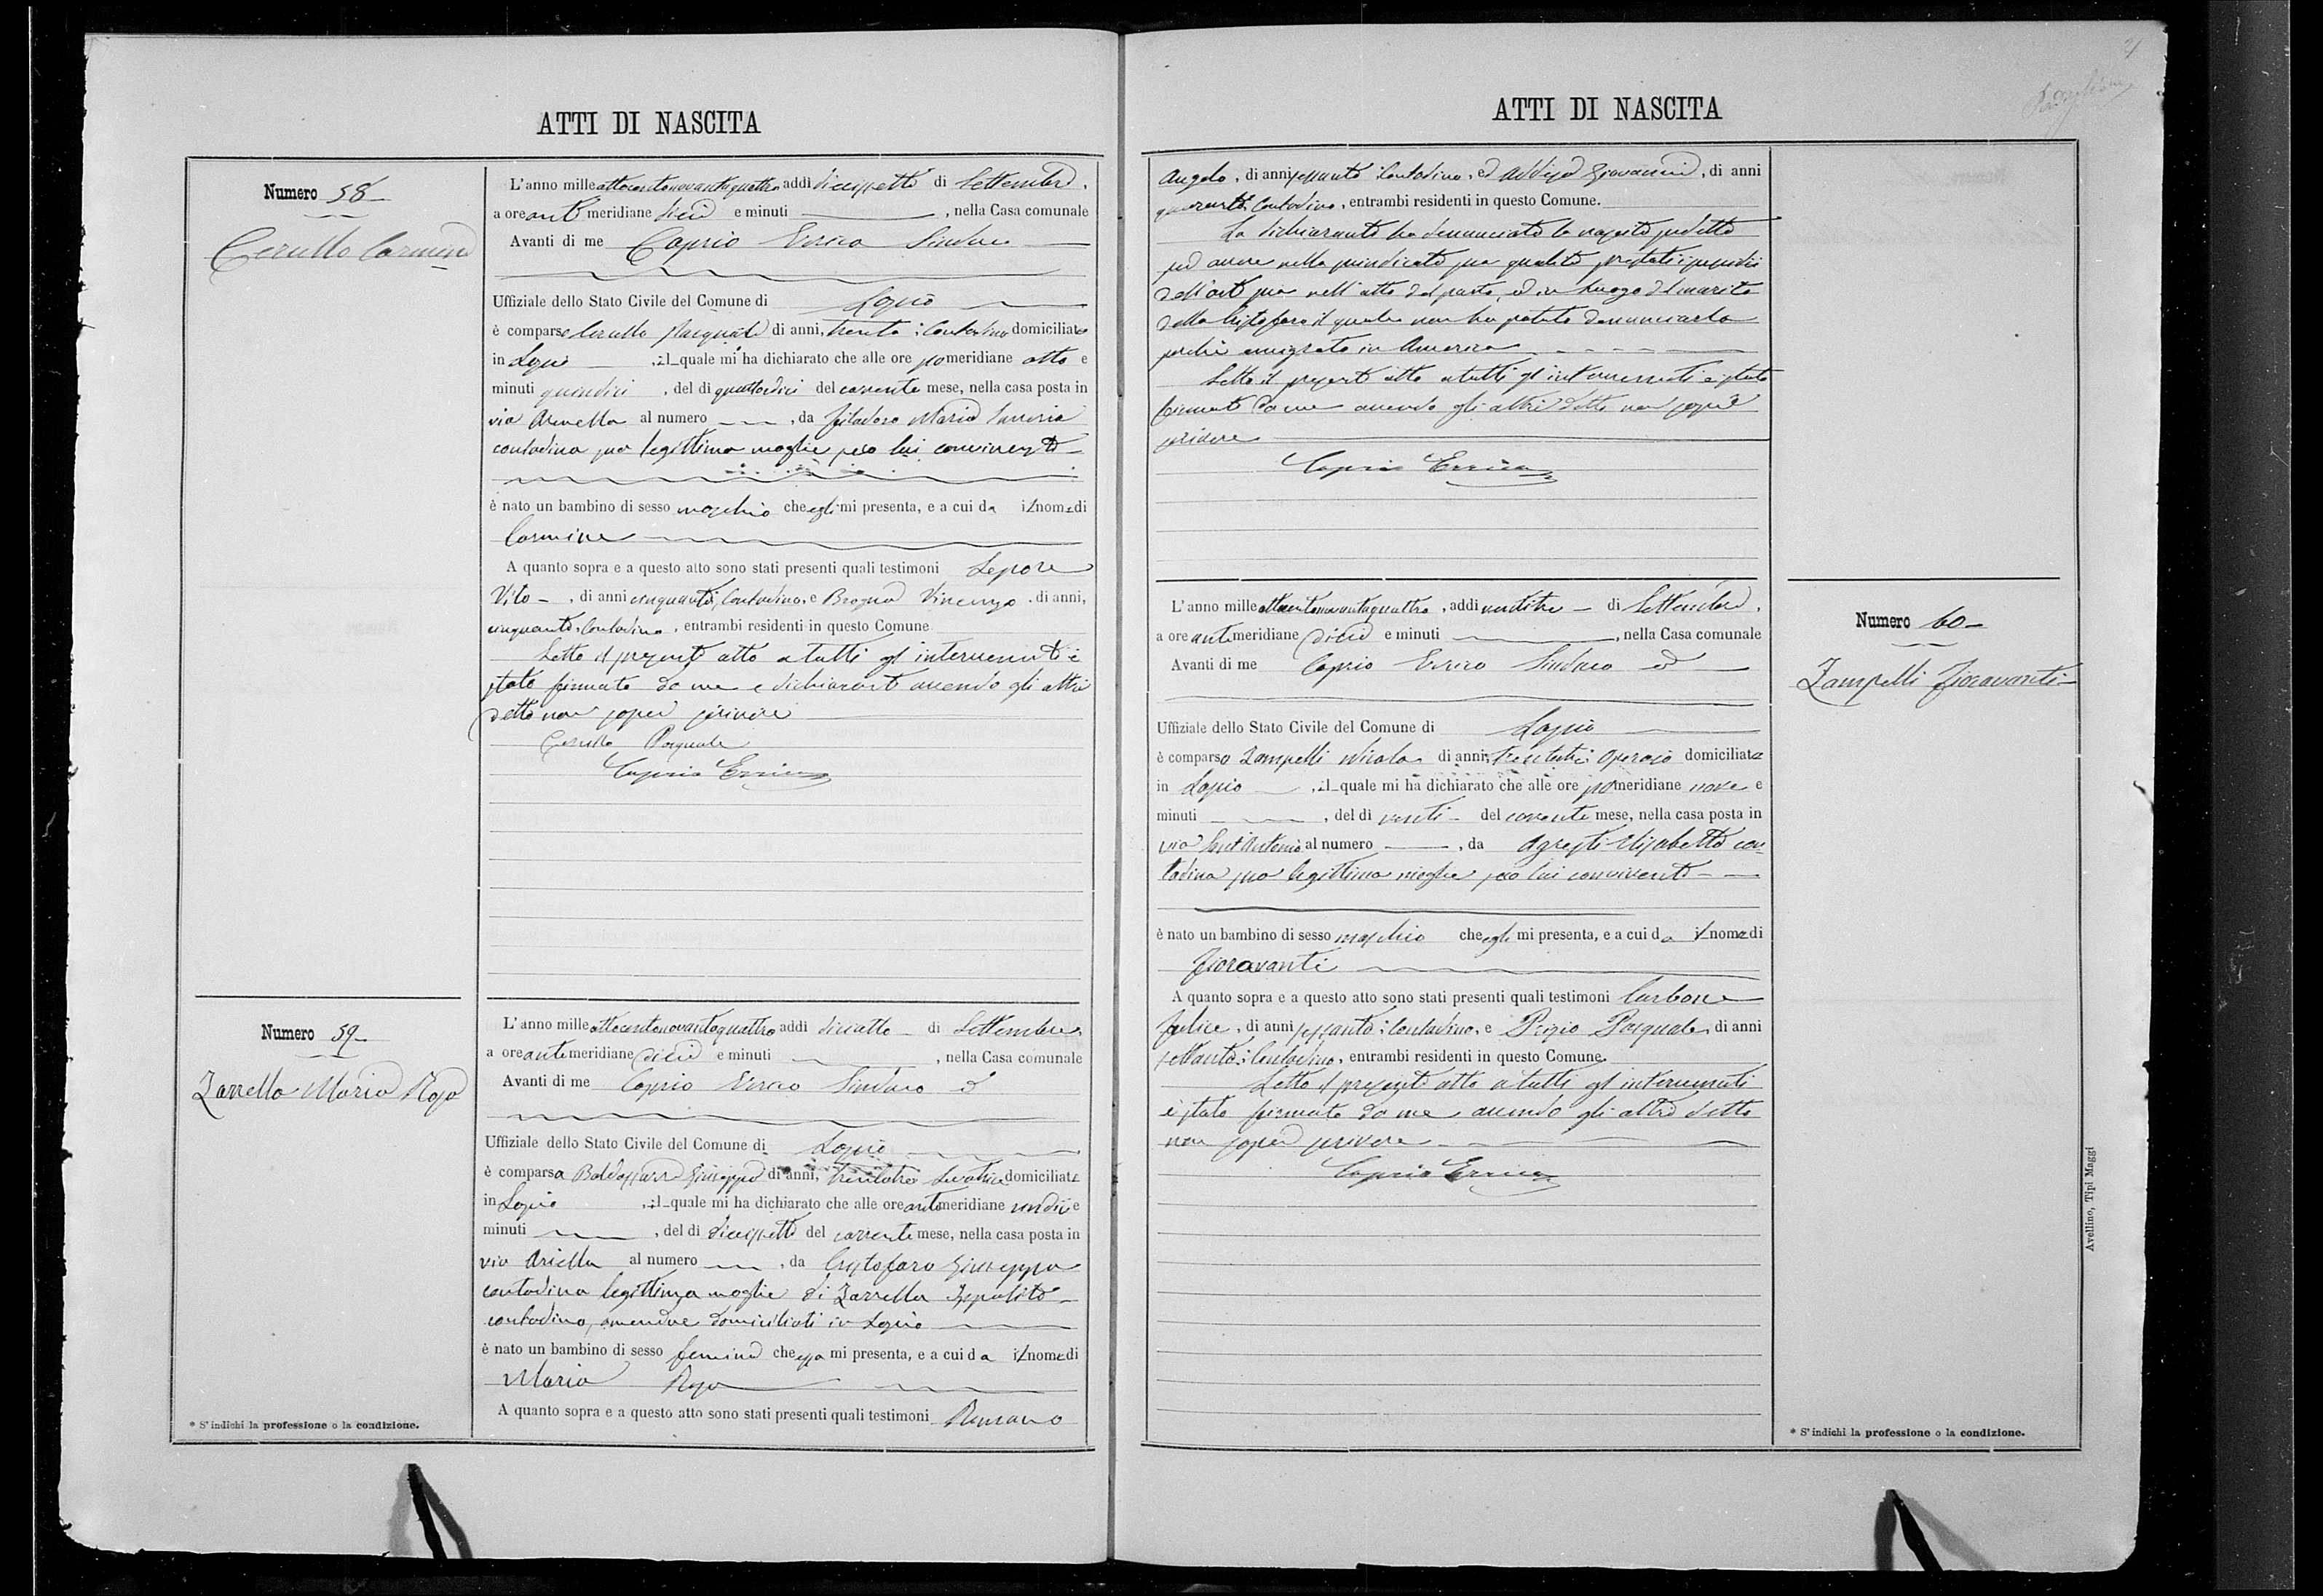 ATTI DI NASCITA
Numero 58
Cerullo Carmine
L'anno mille ottocentonovantaquattro addì diecissette di Settembre,
a ore anti meridiane dieci e minuti , nella Casa comunale
Avanti di me Caprio Errico Sindaco
Uffiziale dello Stato Civile del Comune di Lapio
è comparso Cerullo Pasquale di anni, trenta: Contadino domiciliato
in Lapio , il quale mi ha dichiarato che alle ore pomeridiane otto e
minuti quindici , del dì quattordici del corrente mese, nella casa posta in
via Arenella al numero , da Maria
contadina sua legittima moglie seco lui convivente
è nato un bambino di sesso maschio che egli mi presenta, e a cui da il nome di
Carmine
A quanto sopra e a questo atto sono stati presenti quali testimoni Lepore
Vito , di anni cinquanta, Contadino, e Brogna Vincenzo di anni,
cinquanta, Contadino, entrambi residenti in questo Comune.
Letto il presente atto a tutti gl'intervenuti è
stato firmato da me e dichiarante avendo gli altri
detto non saper scrivere
Cerullo Pasquale
Caprio Errico
Numero 59
Zarrella Maria Rosa
L'anno mille ottocentonovantaquattro addì dieciotto di Settembre,
a ore antimeridiane dieci e minuti , nella Casa comunale
Avanti di me Caprio Errico Sindaco ed
Uffiziale dello Stato Civile del Comune di Lapio
è comparsa Baldassarre Giuseppa di anni, trentatre Levatrice domiciliata
in Lapio , il quale mi ha dichiarato che alle ore antimeridiane undici e
minuti , del dì diecissette del corrente mese, nella casa posta in
via Ariella al numero , da Cristofaro Giuseppa
contadina legittima moglie di Zarrella Ippolito
contadino, amendue domiciliati in Lapio
è nato un bambino di sesso femineo che essa mi presenta, e a cui da il nome di
Maria Rosa
A quanto sopra e a questo atto sono stati presenti quali testimoni Romano
* S'indichi la professione o la condizione.
ATTI DI NASCITA
Angelo, di anni sessanta Contadino, ed Addesa Giovanni, di anni
quaranta Contadino, entrambi residenti in questo Comune.
La dichiarante ha denunciato la nascita predetta
per avere nella prindicata sua qualità prestati i sussidii
dell'arte sua nell'atto del parto, ed in luogo del marito
della Cristofaro il quale non ha potuto denunciarla
perchè emigrato in America
Letto il presente atto a tutti gl'intervenuti è stato
firmato da me avendo gli altri detto non saper
scrivere
Caprio Errico
Numero 60
Zampelli Fioravanti
L'anno mille ottocentonovantaquattro, addì ventitre di Settembre,
a ore antimeridiane dieci e minuti , nella Casa comunale
Avanti di me Caprio Errico Sindaco ed
Uffiziale dello Stato Civile del Comune di Lapio
è comparso Zampelli Nicola di anni, trentasei: Operaio domiciliato
in Lapio , il quale mi ha dichiarato che alle ore pomeridiane nove e
minuti , del dì venti del corrente mese, nella casa posta in
via Sant'Antonio al numero , da Agresti Elisabetta con
tadina sua legittima moglie seco lui convivente
è nato un bambino di sesso maschio che egli mi presenta, e a cui da il nome di
Fioravanti
A quanto sopra e a questo atto sono stati presenti quali testimoni Carbone
Felice, di anni sessanta: Contadino, e Pasquale, di anni
settanta: Contadino, entrambi residenti in questo Comune.
Letto il presente atto a tutti gl'intervenuti
è stato firmato da me avendo gli altri detto
non saper scrivere
Caprio Errico
* S'indichi la professione o la condizione.
Avellino, Tipi Maggi